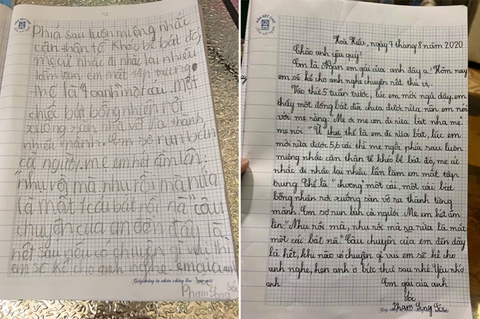 Phía sau luôn miệng nhắc
cẩn thận tể khẻo bể bát đó
mẹ cứ nhắc đi nhắc lại nhiều
lần làm em mất tập trung
thế là một cái một
chiếc bát bỗng nhiên rơi
xuống sàn và vỡ thành
mảnh. Em sợ run bần
cả người. mẹ em ầm lên:
như rồi mà như rồi mà rửa
là mất 1 cái bát nà" câu
chuyện của đến đây là
hết sau này có chuyện gì vui thì
em sẽ kể cho anh nghe em gái anh
Sói
Phạm
Hoà Hải, ngày 7 tháng 8 năm 2020
Chào anh yêu quý!
Em là em gái của anh đây ạ. Hôm nay
em sẽ kể cho anh chuyện rất thú vị.
Vào thứ 5 tuần trước, lúc em mới ngủ dậy, em
thấy một đống bát đũa chưa được rửa nên em nói
với mẹ rằng: "Mẹ ơi mẹ em đi rửa bát nha mẹ"
mẹ nói: "Ừ" thế thế là em đi rửa bát, lúc em
mới rửa được 5, 6 cái thì mẹ ngồi phía sau luôn
miệng nhắc cẩn thận tể khẻo bể bát đó, mẹ cứ
nhắc đi nhắc lại nhiều lần làm em mất tập
trung. Thế là một cái, một cái bát
bỗng nhiên rơi xuống sàn và vỡ thành từng
mảnh. Em sợ run bần cả người. Mẹ em hét ầm
lên: "Như rồi mà, như rồi mà rửa là mất
một cái bát nà." Câu chuyện của em đến đây
là hết, khi nào có chuyện gì vui em sẽ kể cho
anh nghe, hẹn anh ở bức thư sau nhé. Yêu nhớ
anh
Em gái của anh
Sói
Phạm